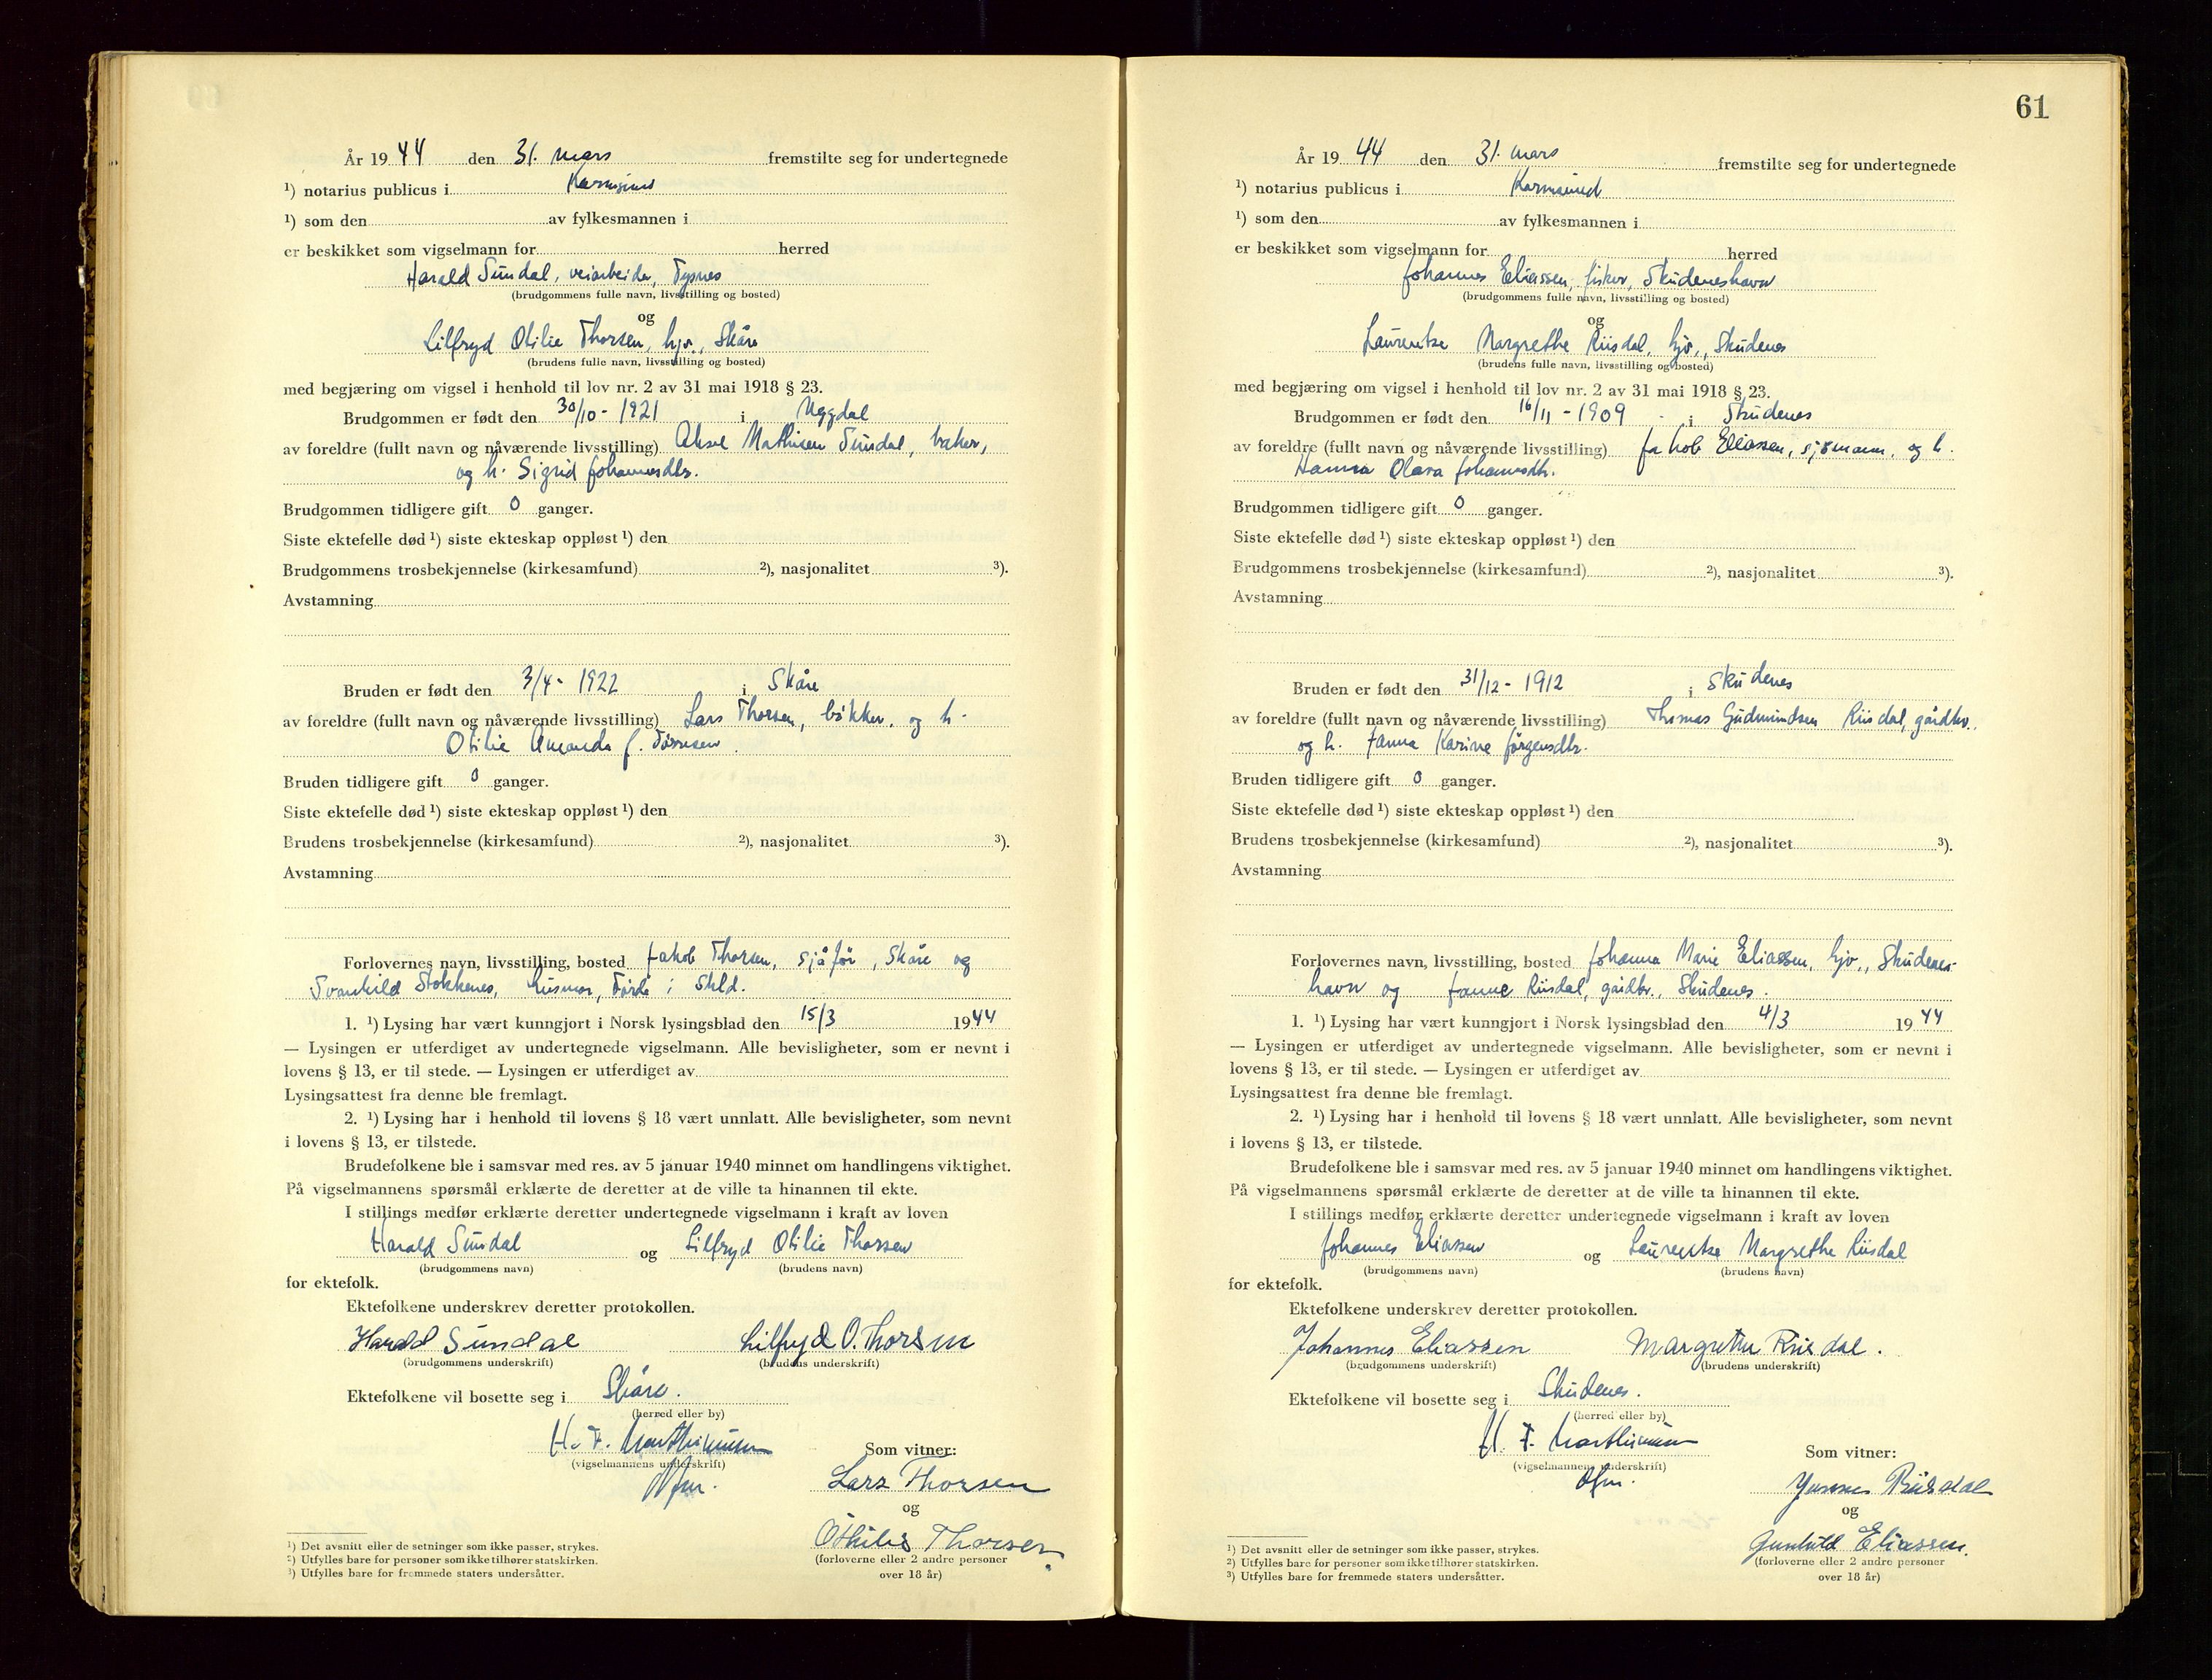 År 19 44 den 31. mars fremstilte seg for undertegnede
¹) notarius publicus i Karmsund
¹) som den av fylkesmannen i
er beskikket som vigselmann for herred
Harald Sundal, veiarbeider, Tysnes
(brudgommens fulle navn, livsstilling og bosted)
og
Lilfryd Otilie Thorsen, hjv., Skåre
(brudens fulle navn, livsstilling og bosted)
med begjæring om vigsel i henhold til lov nr. 2 av 31 mai 1918 § 23.
Brudgommen er født den 30/10 - 1921 i Uggdal
av foreldre (fullt navn og nåværende livsstilling) Aksel Mathisen Sundal, baker,
og h. Sigrid Johannesdtr.
Brudgommen tidligere gift 0 ganger.
Siste ektefelle død ¹) siste ekteskap oppløst ¹) den
Brudgommens trosbekjennelse (kirkesamfund) ²), nasjonalitet ³).
Avstamning
Bruden er født den 3/4 - 1922 i Skåre
av foreldre (fullt navn og nåværende livsstilling) Lars Thorsen, bøkker, og h.
Otilie Amanda f. Tørresen.
Bruden tidligere gift 0 ganger.
Siste ektefelle død ¹) siste ekteskap oppløst ¹) den
Brudens trosbekjennelse (kirkesamfund) ²), nasjonalitet ³).
Avstamning
Forlovernes navn, livsstilling, bosted Jakob Thorsen, sjåför, Skåre og
Svanhild Stokkenes, husmor, Førde i Skld.
1. ¹) Lysing har vært kunngjort i Norsk lysingsblad den 15/3 1944
— Lysingen er utferdiget av undertegnede vigselmann. Alle bevisligheter, som er nevnt i
lovens § 13, er til stede. — Lysingen er utferdiget av
Lysingsattest fra denne ble fremlagt.
2. ¹) Lysing har i henhold til lovens § 18 vært unnlatt. Alle bevisligheter, som nevnt
i lovens § 13, er tilstede.
Brudefolkene ble i samsvar med res. av 5 januar 1940 minnet om handlingens viktighet.
På vigselmannens spørsmål erklærte de deretter at de ville ta hinannen til ekte.
I stillings medfør erklærte deretter undertegnede vigselmann i kraft av loven
Harald Sundal og Lilfryd Otilie Thorsen
(brudgommens navn) (brudens navn)
for ektefolk.
Ektefolkene underskrev deretter protokollen.
Harald Sundal Lilfryd O. Thorsen
(brudgommens underskrift) (brudens underskrift)
Ektefolkene vil bosette seg i Skåre.
(herred eller by)
H. F. Marthinussen
(vigselmannens underskrift)
Som vitner:
Lars Thorsen
og
Othilie Thorsen.
(forloverne eller 2 andre personer
over 18 år)
¹) Det avsnitt eller de setninger som ikke passer, strykes.
²) Utfylles bare for personer som ikke tilhører statskirken.
³) Utfylles bare for fremmede staters undersåtter.
61
År 19 44 den 31. mars fremstilte seg for undertegnede
¹) notarius publicus i Karmsund
¹) som den av fylkesmannen i
er beskikket som vigselmann for herred
Johannes Eliassen, fisker, Skudeneshavn
(brudgommens fulle navn, livsstilling og bosted)
og
Laurentse Margrethe Riisdal, hjv., Skudenes
(brudens fulle navn, livsstilling og bosted)
med begjæring om vigsel i henhold til lov nr. 2 av 31 mai 1918 § 23.
Brudgommen er født den 16/11 - 1909 i Skudenes
av foreldre (fullt navn og nåværende livsstilling) Jakob Eliassen, sjømann, og h.
Hanna Olava Johannesdtr.
Brudgommen tidligere gift 0 ganger.
Siste ektefelle død ¹) siste ekteskap oppløst ¹) den
Brudgommens trosbekjennelse (kirkesamfund) ²), nasjonalitet ³).
Avstamning
Bruden er født den 31/12 - 1912 i Skudenes
av foreldre (fullt navn og nåværende livsstilling) Thomas Gudmundsen Riisdal, gårdbr.,
og h. Janna Karine Jørgensdtr.
Bruden tidligere gift 0 ganger.
Siste ektefelle død ¹) siste ekteskap oppløst ¹) den
Brudens trosbekjennelse (kirkesamfund) ²), nasjonalitet ³).
Avstamning
Forlovernes navn, livsstilling, bosted Johanna Marie Eliassen, hjv., Skudenes-
havn og Riisdal, gårdbr., Skudenes.
1. ¹) Lysing har vært kunngjort i Norsk lysingsblad den 4/3 19 44
— Lysingen er utferdiget av undertegnede vigselmann. Alle bevisligheter, som er nevnt i
lovens § 13, er til stede. — Lysingen er utferdiget av
Lysingsattest fra denne ble fremlagt.
2. ¹) Lysing har i henhold til lovens § 18 vært unnlatt. Alle bevisligheter, som nevnt
i lovens § 13, er tilstede.
Brudefolkene ble i samsvar med res. av 5 januar 1940 minnet om handlingens viktighet.
På vigselmannens spørsmål erklærte de deretter at de ville ta hinannen til ekte.
I stillings medfør erklærte deretter undertegnede vigselmann i kraft av loven
Johannes Eliassen og Laurentse Margrethe Riisdal
(brudgommens navn) (brudens navn)
for ektefolk.
Ektefolkene underskrev deretter protokollen.
Johannes Eliassen Margrethe Riisdal.
(brudgommens underskrift) (brudens underskrift)
Ektefolkene vil bosette seg i Skudenes.
(herred eller by)
H. F. Marthinussen
(vigselmannens underskrift)
Som vitner:
Riisdal
og
Gunhild Eliassen.
(forloverne eller 2 andre personer
over 18 år)
¹) Det avsnitt eller de setninger som ikke passer, strykes.
²) Utfylles bare for personer som ikke tilhører statskirken.
³) Utfylles bare for fremmede staters undersåtter.